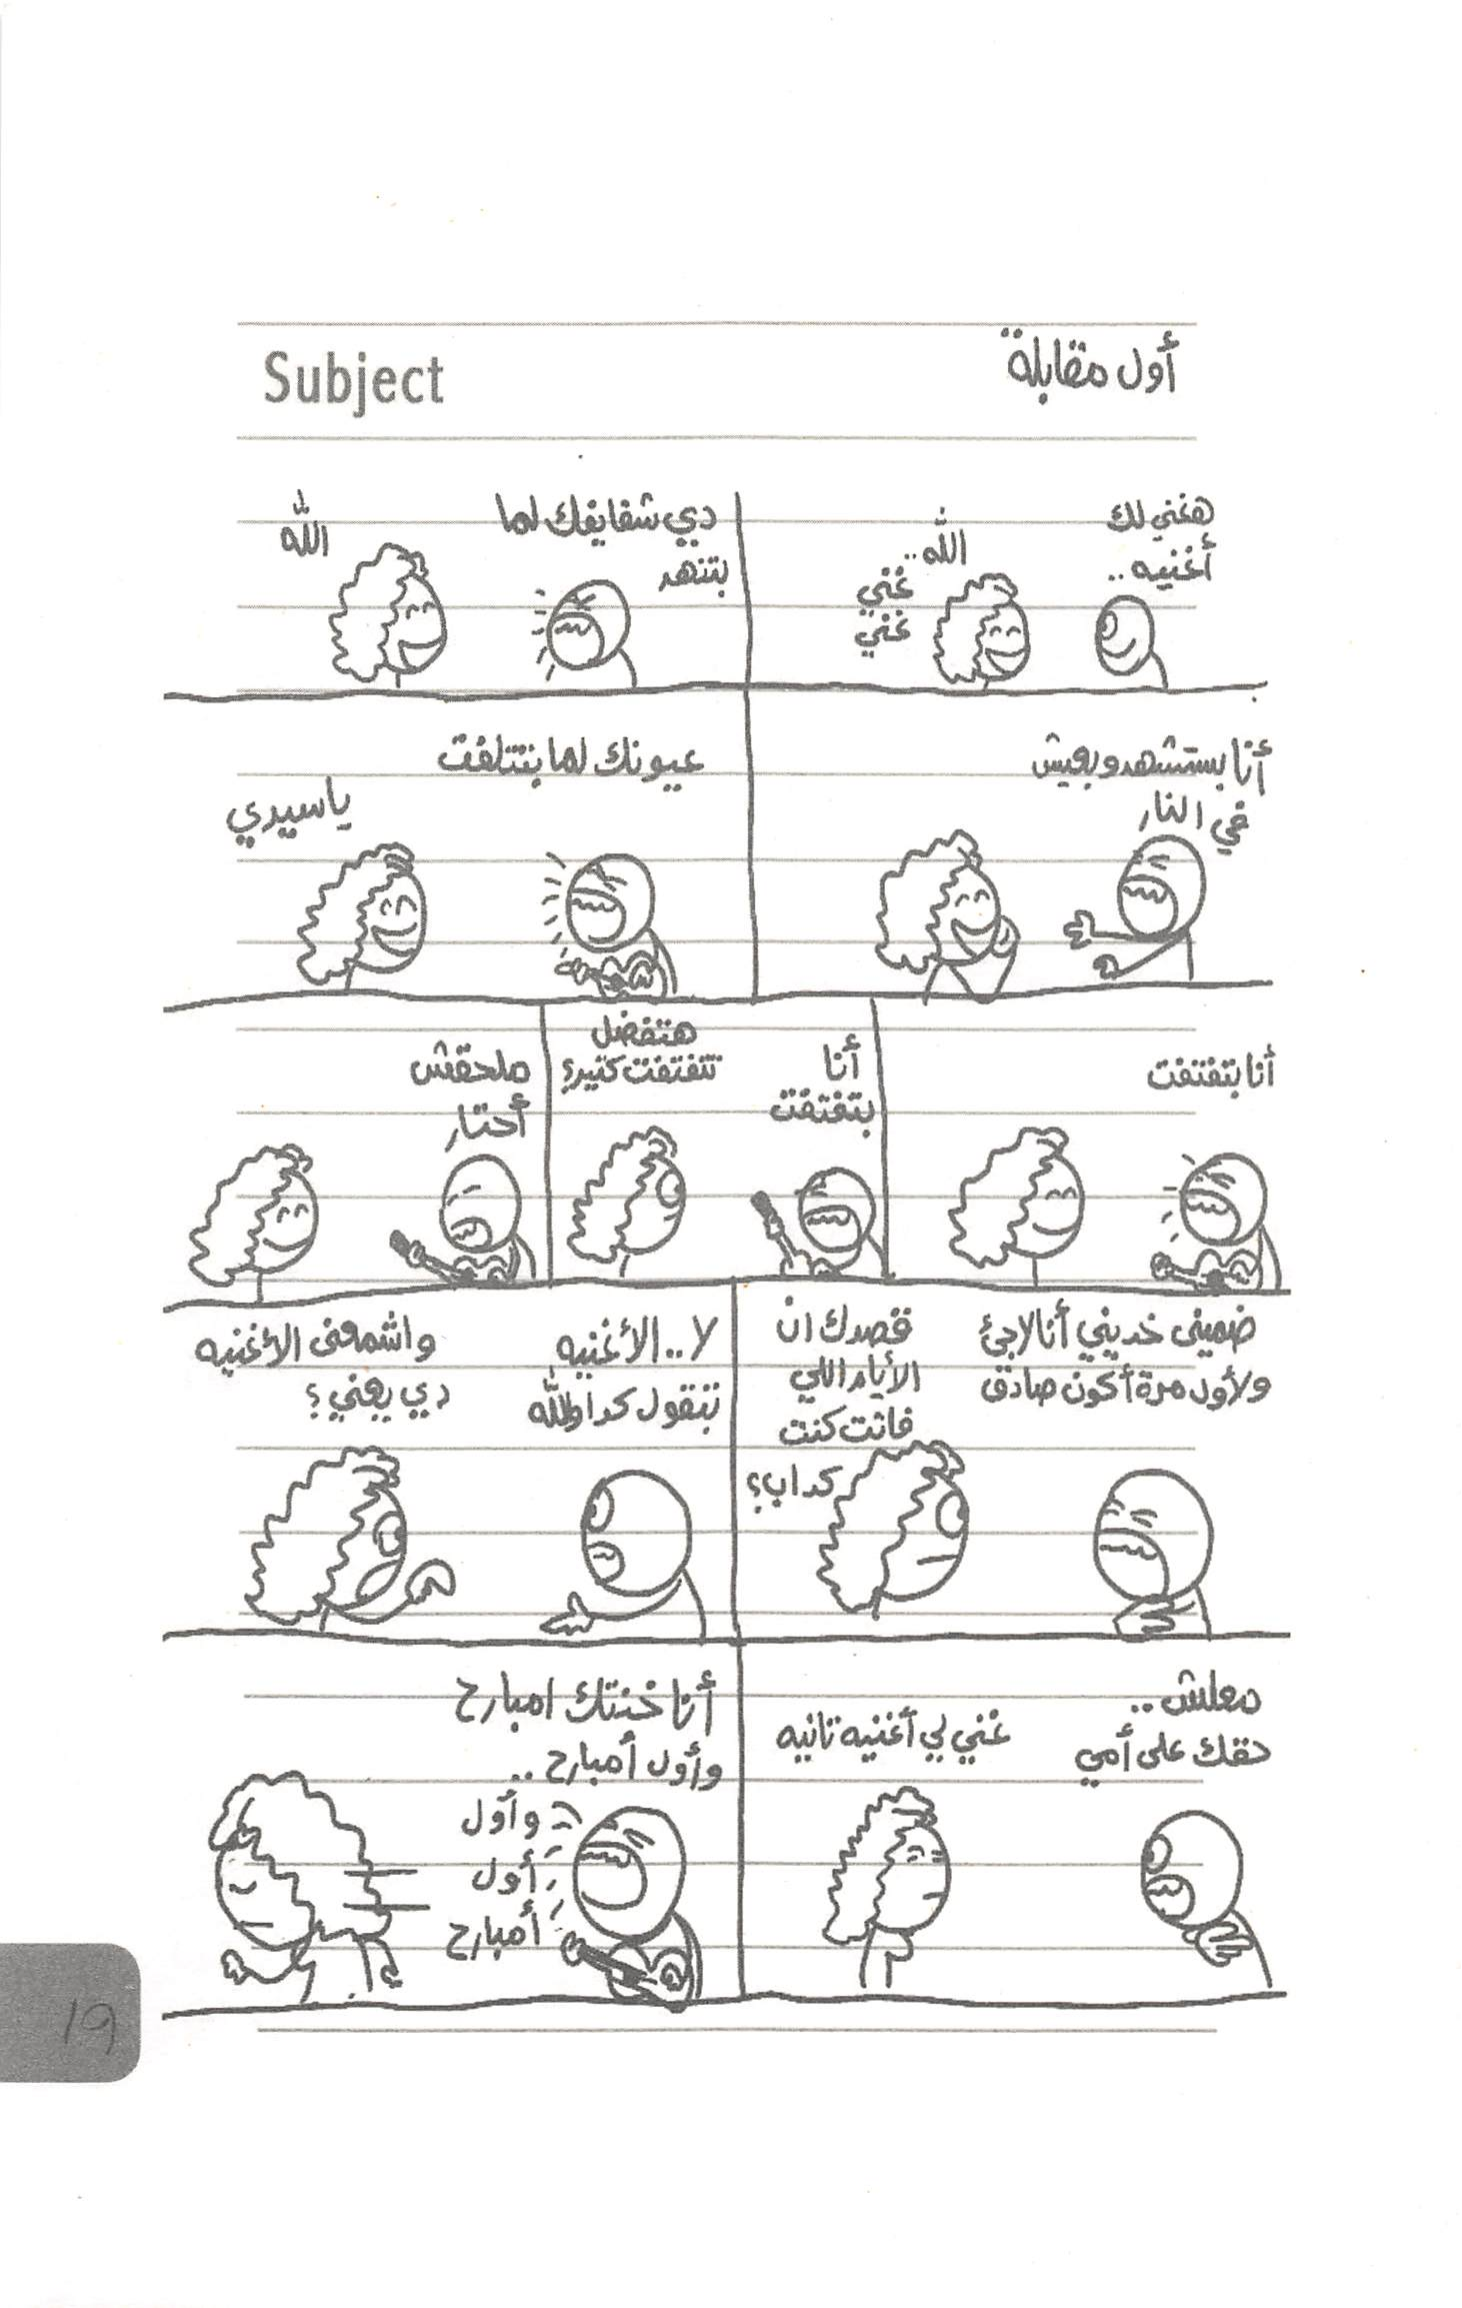 Subject
أول مقابلة
هغني لك
أغنيه..
الله..
غني
غني
دي شفايفك لما
بتنهد
الله
أنا بستشهد وبعيش
في النار
عيونك لما بتتلفت
ياسيدي
أنا بتفتفت
أنا
بتفتفت
هتفضل
تتفتفت كتير؟
ملحقش
أحتار
ضميني خديني أنا لاجئ
ولأول مرة أكون صادق
قصدك ان
الأيام اللي
فاتت كنت
كداب؟
لا.. الأغنيه
بتقول كدا والله
واشمعنى الأغنيه
دي يعني؟
معلش..
حقك على أمي
غني لي أغنيه تانيه
أنا خنتك امبارح
وأول أمبارح..
وأول
أول
أمبارح
19